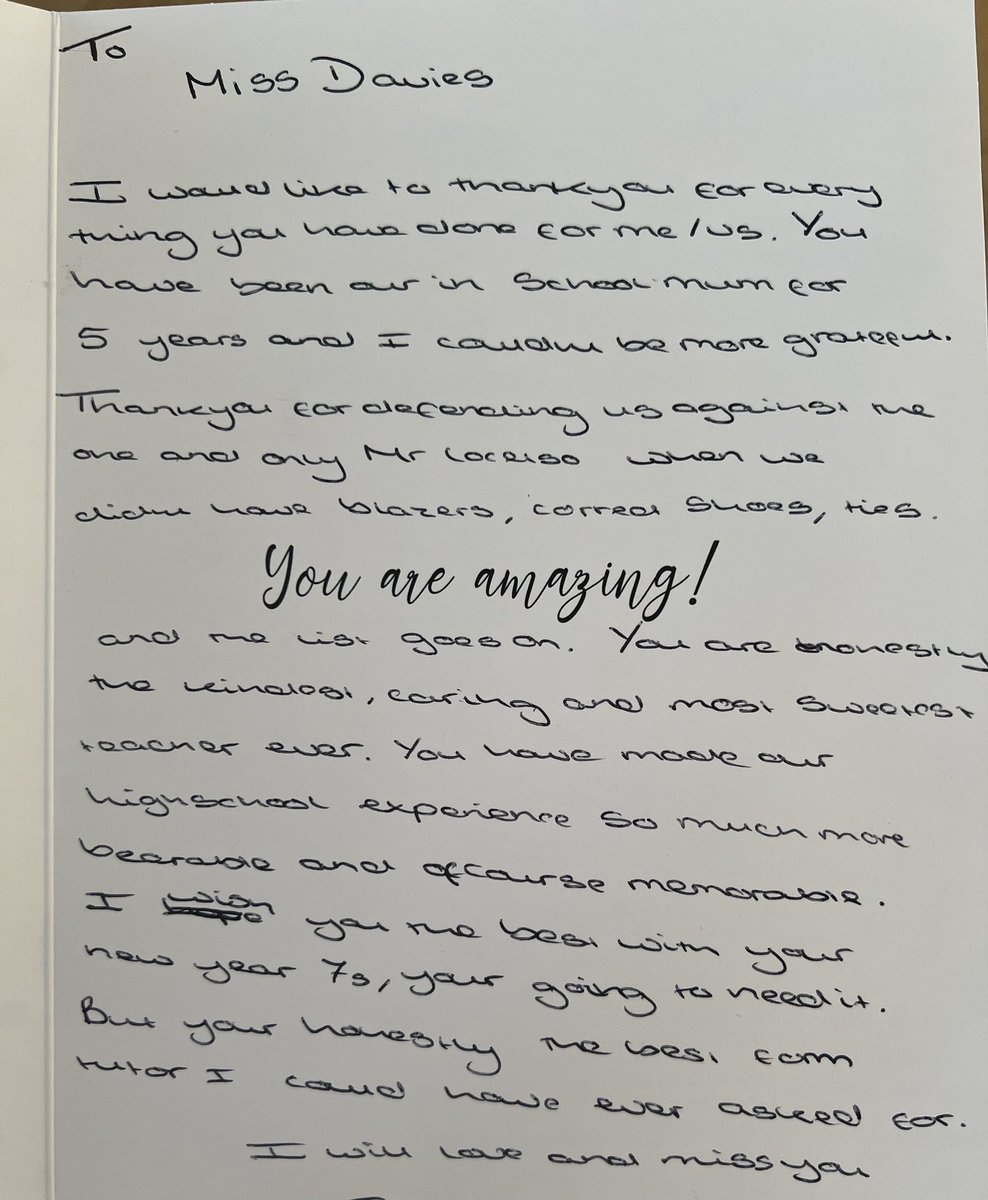 To
Miss Davies
I would like to thankyou for every
thing you have done for me/us. You
have been our in school mum for
5 years and I couldn't be more grateful.
Thankyou for defending us against the
one and only Mr when we
didnt have blazers, correct shoes, ties.
You are amazing!
and the list goes on. You are honestly
the kindest, caring and most sweetest
teacher ever. You have made our
highschool experience so much more
bearable and ofcourse memorable.
I wish you the best with your
new year 7s, your going to need it.
But your honestly the best form
tutor I could have ever asked for.
I will love and miss you